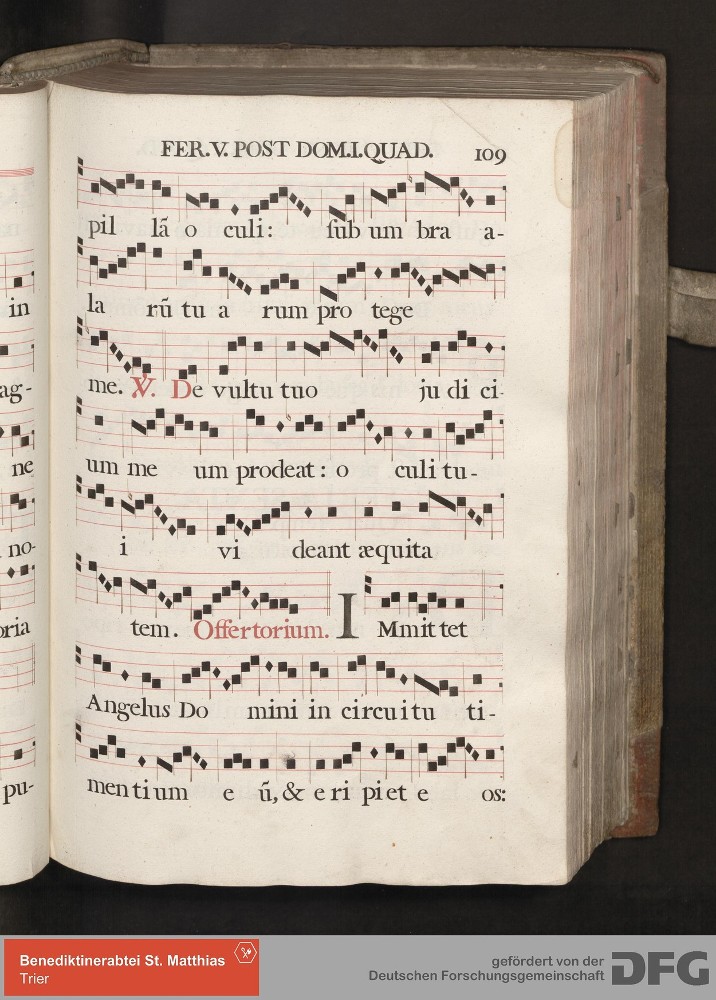 FER.V. POST DOM.I.QUAD. 109
pil lã o culi: sub um bra a-
la rũ tu a rum pro tege
me. ℣. De vultu tuo ju di ci-
um me um prodeat: o culi tu-
i vi deant æquita
tem. Offertorium. IMmit tet
Angelus Do mini in circuitu ti-
men ti um e ũ, & e ri pi et e os:
in
ag-
ne
no-
oria
pu-
Benediktinerabtei St. Matthias
Trier
gefördert von der
Deutschen Forschungsgemeinschaft
DFG